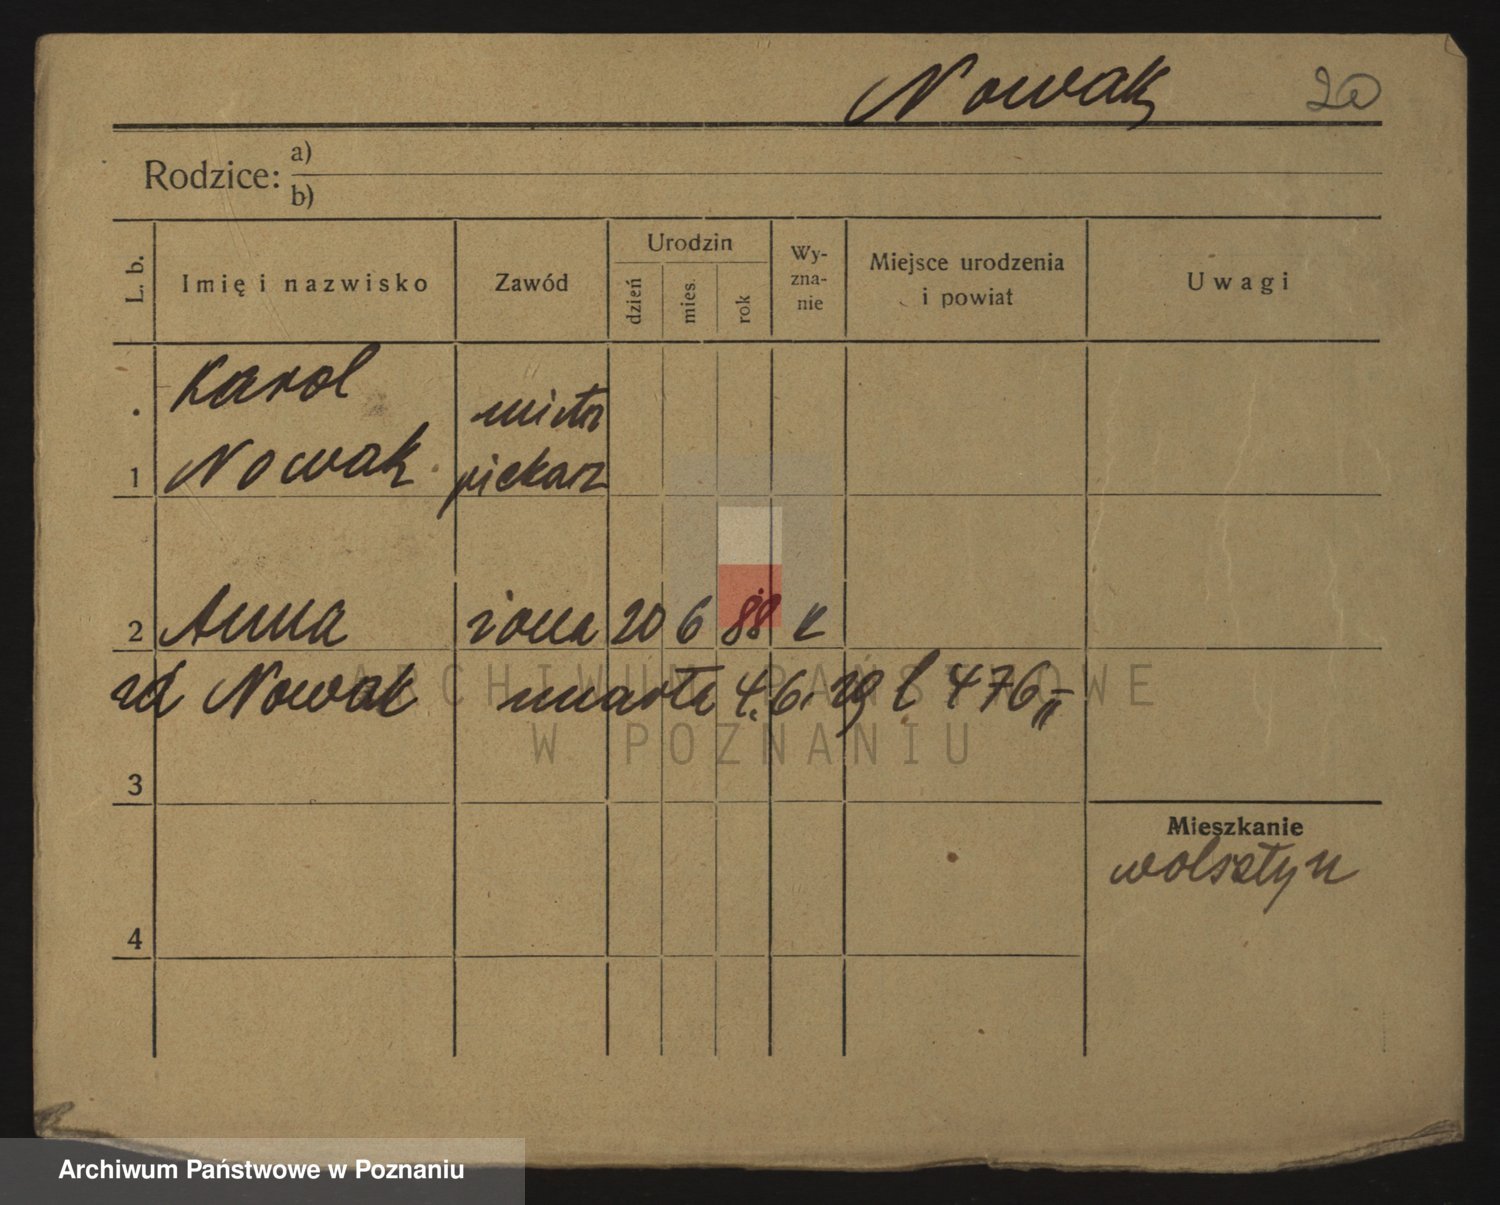 Nowak 20
Rodzice: a)
b)
L. b.
Imię i nazwisko
Zawód
Urodzin
dzień
mies.
rok
Wy-
zna-
nie
Miejsce urodzenia
i powiat
Uwagi
Karol
Nowak
piekarz
1
2 Anna żona 20 6 88 k
Nowak zmarła 4.6.29 l 476
3
4
Mieszkanie
Wolsztyn
ARCHIWUM PAŃSTWOWE
W POZNANIU
Archiwum Państwowe w Poznaniu